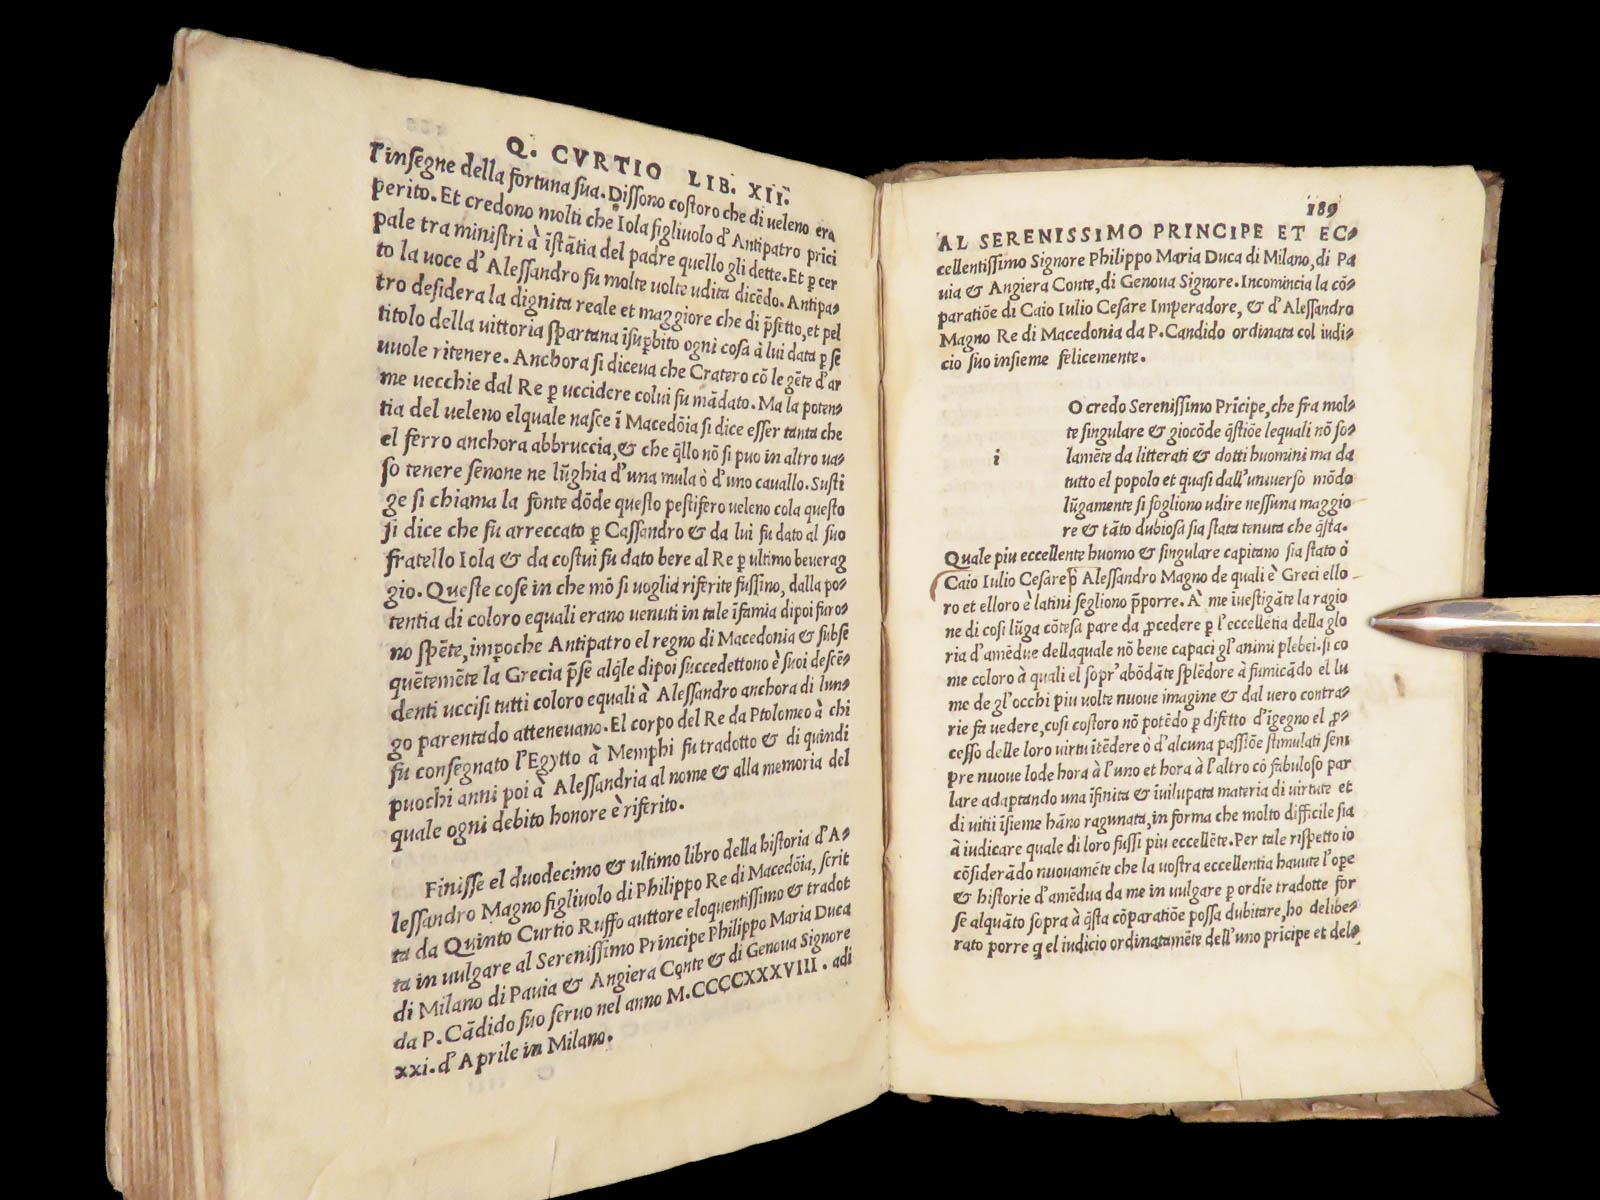 Q. CVRTIO LIB. XII.
l'insegne della fortuna sua. Dissono costoro che di ueleno era
perito. Et credono molti che Iola figliuolo d'Antipatro prici
pale tra ministri à īstātia del padre quello gli dette. Et ꝑ cer
to la uoce d'Alessandro fu molte uolte udita dicēdo. Antipa-
tro desidera la dignita reale et maggiore che di p̄fetto, et pel
titolo della uittoria spartana īsuꝑbito ogni cosa à lui data ꝑ se
uuole ritenere. Anchora si diceua che Cratero cō le gēte d'ar
me uecchie dal Re ꝑ uccidere colui fu mādato. Ma la poten-
tia del ueleno elquale nasce ī Macedōia si dice esser tanta che
el ferro anchora abbruccia, & che q̄llo nō si puo in altro ua-
so tenere sēnone ne lūghia d'una mula ò d'uno cauallo. Susti
ge si chiama la fonte dōde questo pestifero ueleno cola questo
si dice che fu arreccato ꝑ Cassandro & da lui fu dato al suo
fratello Iola & da costui fu dato bere al Re ꝑ ultimo beuerag
gio. Queste cose in che mō si uoglia riferite fussino, dalla po-
tentia di coloro equali erano uenuti in tale īfamia dipoi furo-
no spēte, imꝑoche Antipatro el regno di Macedonia & subse
quētemēte la Grecia p̄se alq̄le dipoi succedettono è suoi descē-
denti uccisi tutti coloro equali à Alessandro anchora di lun-
go parentado atteneuano. El corpo del Re da Ptolomeo à chi
fu consegnato l'Egytto à Memphi fu tradotto & di quindi
puochi anni poi à Alessandria al nome & alla memoria del
quale ogni debito honore è riferito.
Finisse el duodecimo & ultimo libro della historia d'A-
lessandro Magno figliuolo di Philippo Re di Macedōia, scrit
ta da Quinto Curtio Ruffo auttore eloquentissimo & tradot
ta in uulgare al Serenissimo Principe Philippo Maria Duca
di Milano di Pauia & Angiera Conte & di Genoua Signore
da P. Cādido suo seruo nel anno M.CCCCXXXVIII. adi
xxi. d'Aprile in Milano.
189
AL SERENISSIMO PRINCIPE ET EC-
cellentissimo Signore Philippo Maria Duca di Milano, di Pa
uia & Angiera Conte, di Genoua Signore. Incomincia la cō-
paratiōe di Caio Iulio Cesare Imperadore, & d'Alessandro
Magno Re di Macedonia da P. Candido ordinata col iudi-
cio suo insieme felicemente.
i
O credo Serenissimo Prīcipe, che fra mol-
te singulare & giocōde q̄stiōe lequali nō so-
lamēte da litterati & dotti huomini ma da
tutto el popolo et quasi dall'uniuerso mōdo
lūgamente si sogliono udire nessuna maggio
re & tāto dubiosa sia stata tenuta che q̄sta.
Quale piu eccellente huomo & singulare capitano sia stato ò
Caio Iulio Cesare p̄ Alessandro Magno de quali è Greci ello
ro et elloro è latini segliono p̄porre. A' me iuestigāte la ragio
ne di cosi lūga cōtesa pare da ꝓcedere ꝑ l'eccellētia della glo
ria d'amēdue dellaquale nō bene capaci gl'animi plebei. si co
me coloro à quali el sopr'abōdāte splēdore à fumicādo el lu
me de gl'occhi piu uolte nuoue imagine & dal uero contra-
rie fa uedere, cosi costoro nō potēdo ꝑ difetto d'īgegno el ꝓ-
cesso delle loro uirtu ītēdere ò d'alcuna passiōe stimulati sem
pre nuoue lode hora à l'uno et hora à l'altro cō fabuloso par
lare adaptando una īfinita & īuilupata materia di uirtute et
di uitii īsieme hāno ragunata, in forma che molto difficile sia
à iudicare quale di loro fussi piu eccellēte. Per tale rispetto io
cōsiderādo nuouamēte che la uostra eccellentia hauute l'oꝑe
& historie d'amēdua da me in uulgare ꝑ ordie tradotte for
se alquāto sopra à q̄sta cōparatiōe possa dubitare, ho delibe-
rato porre q̄ el iudicio ordinatamēte dell'uno prīcipe et del-